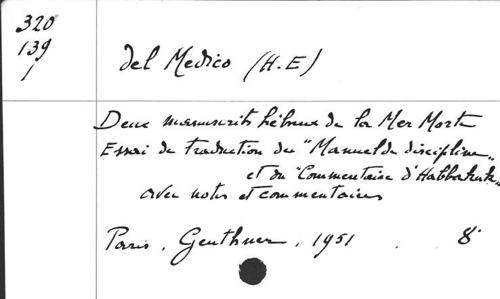 320
139
1
del Medico (H.E)
Deux manuscrits hébreux de la Mer Morte
Essai de traduction du "Manuel de discipline"
et du "Commentaire d'Habbakuk"
avec notes et commentaires
Paris, Geuthner, 1951. 8°